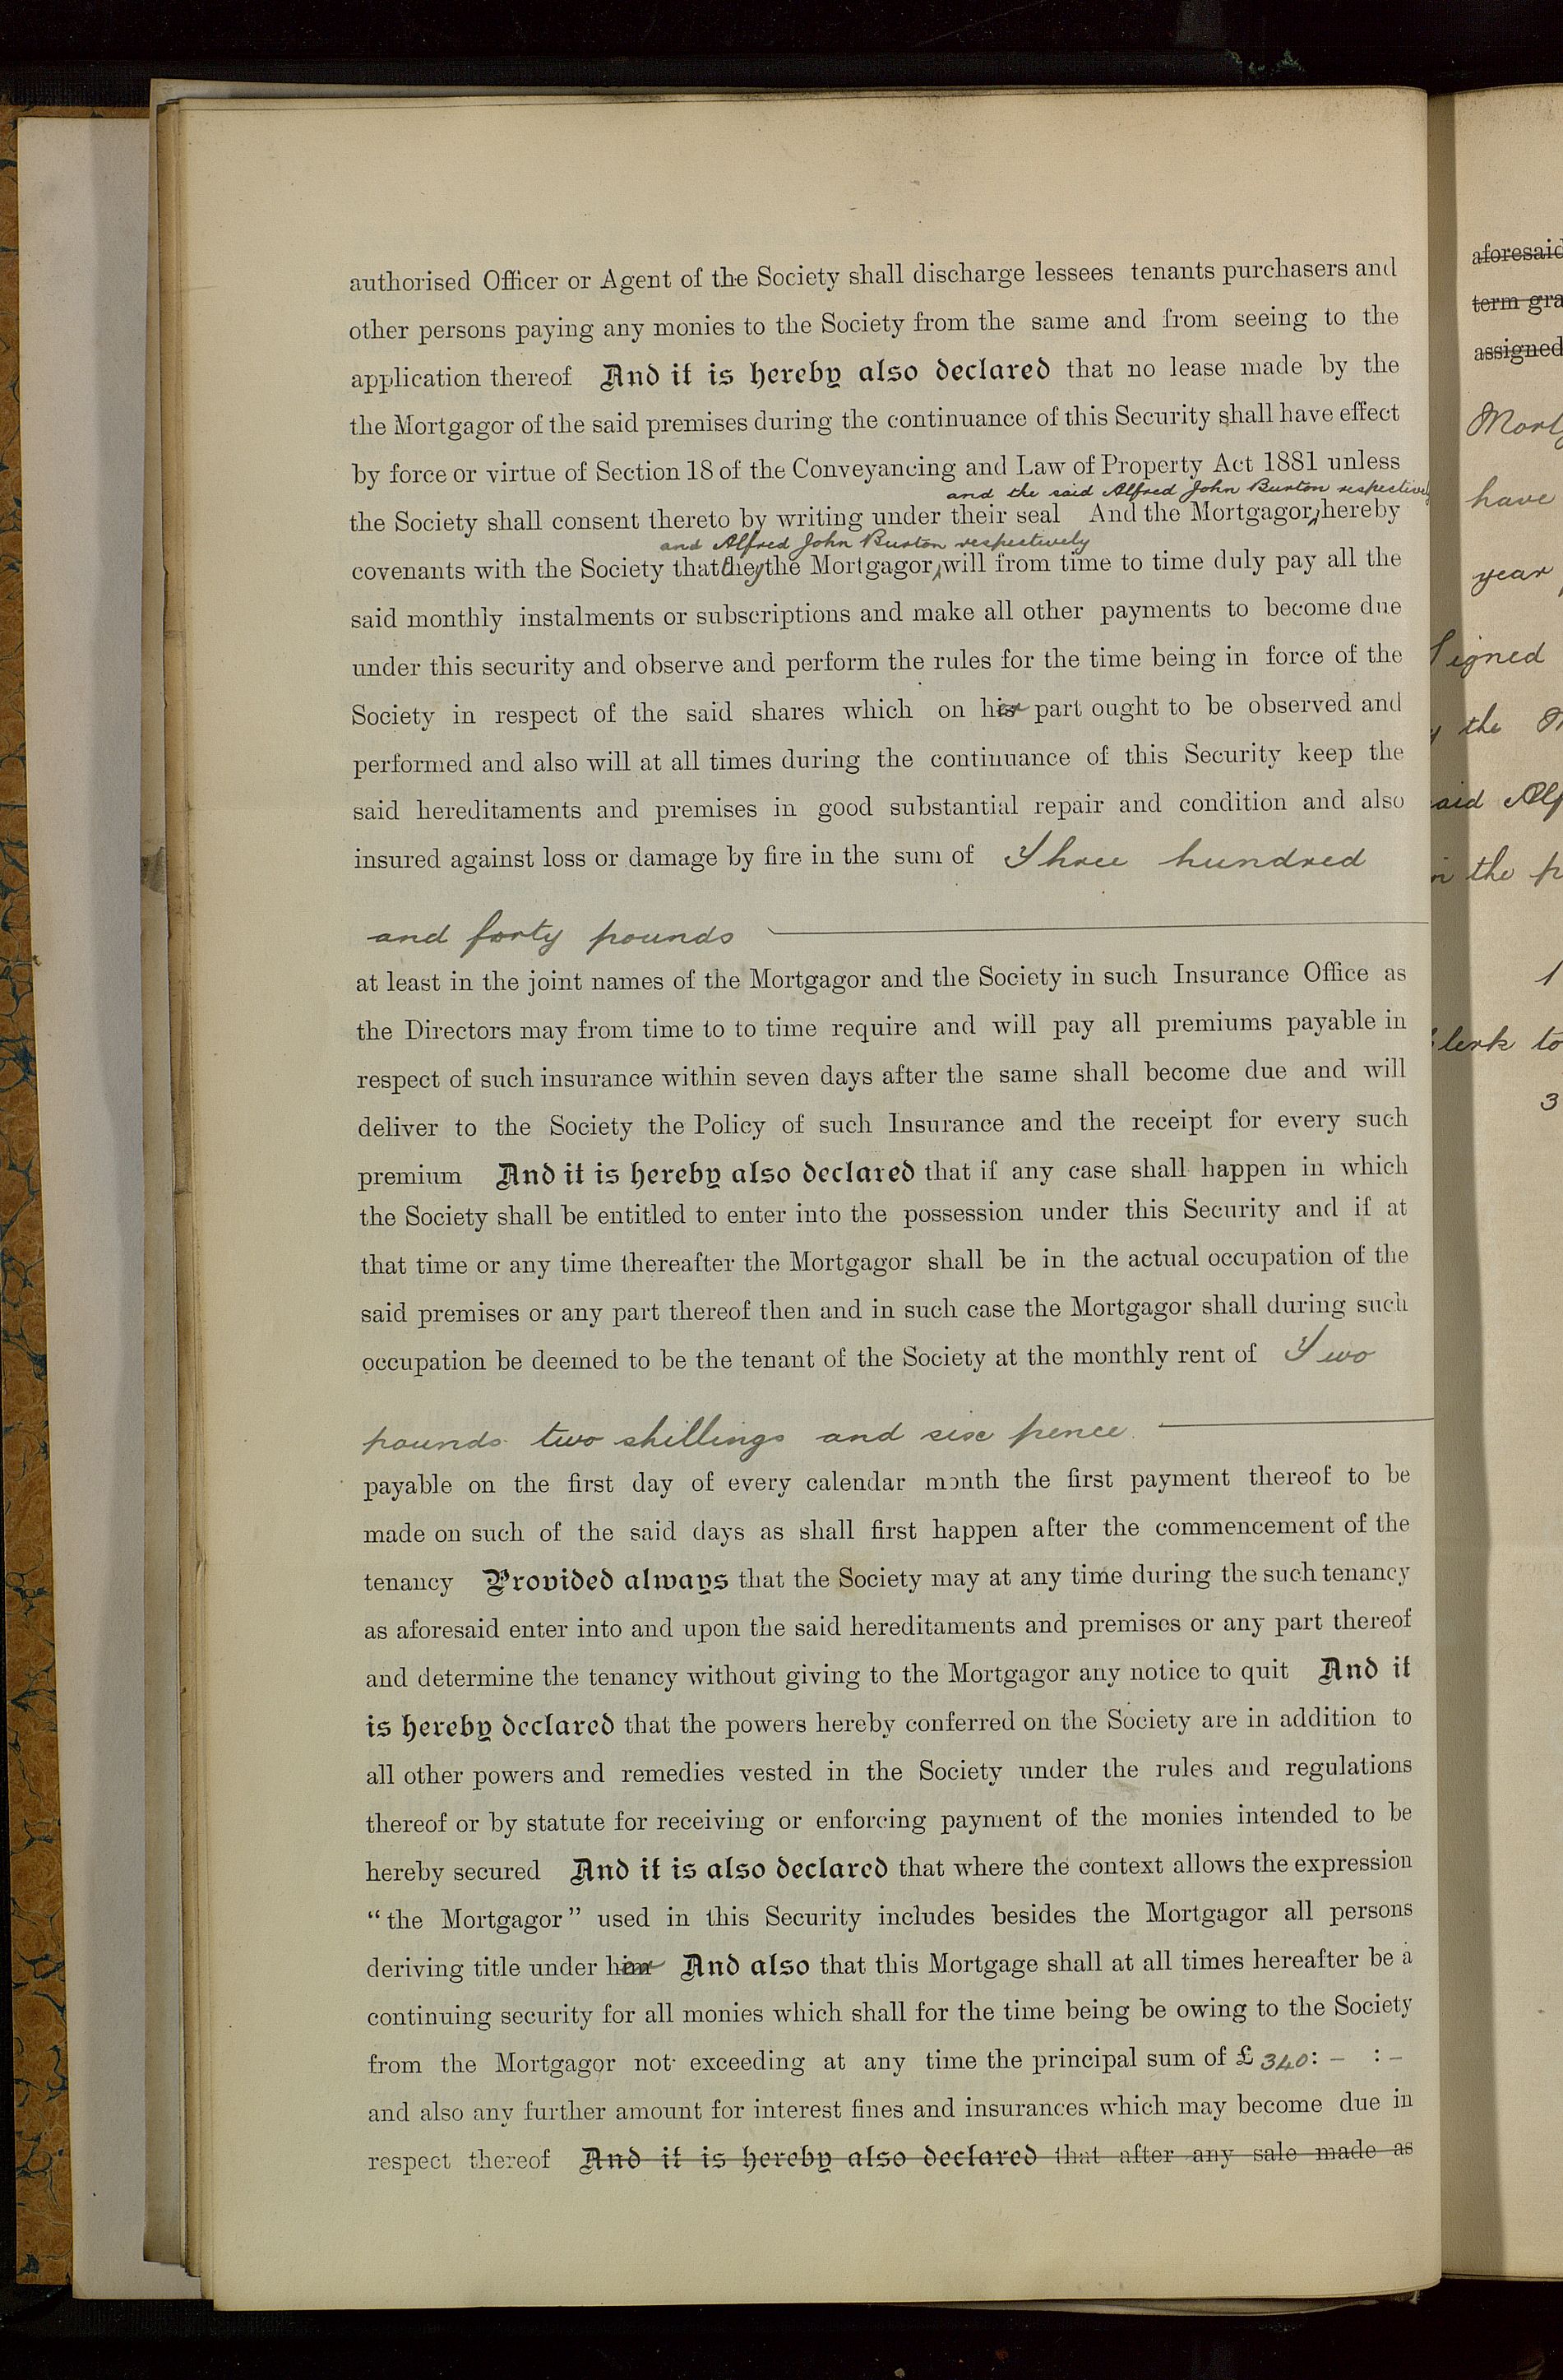 authorised Officer or Agent of the Society shall discharge lessees tenants purchasers and
other persons paying any monies to the Society from the same and from seeing to the
application thereof And it is hereby also declared that no lease made by the
the Mortgagor of the said premises during the continuance of this Security shall have effect
by force or virtue of Section 18 of the Conveyancing and Law of Property Act 1881 unless
and the said Alfred John Burton respectively
the Society shall consent thereto by writing under their seal And the Mortgagor hereby
and Alfred John Burton respectively
covenants with the Society that they the Mortgagor will from time to time duly pay all the
said monthly instalments or subscriptions and make all other payments to become due
under this security and observe and perform the rules for the time being in force of the
Society in respect of the said shares which on her part ought to be observed and
performed and also will at all times during the continuance of this Security keep the
said hereditaments and premises in good substantial repair and condition and also
insured against loss or damage by fire in the sum of Three hundred
and forty pounds
at least in the joint names of the Mortgagor and the Society in such Insurance Office as
the Directors may from time to to time require and will pay all premiums payable in
respect of such insurance within seven days after the same shall become due and will
deliver to the Society the Policy of such Insurance and the receipt for every such
premium And it is hereby also declared that if any case shall happen in which
the Society shall be entitled to enter into the possession under this Security and if at
that time or any time thereafter the Mortgagor shall be in the actual occupation of the
said premises or any part thereof then and in such case the Mortgagor shall during such
occupation be deemed to be the tenant of the Society at the monthly rent of Two
pounds two shillings and six pence
payable on the first day of every calendar month the first payment thereof to be
made on such of the said days as shall first happen after the commencement of the
tenancy Provided always that the Society may at any time during the such tenancy
as aforesaid enter into and upon the said hereditaments and premises or any part thereof
and determine the tenancy without giving to the Mortgagor any notice to quit And it
is hereby declared that the powers hereby conferred on the Society are in addition to
all other powers and remedies vested in the Society under the rules and regulations
thereof or by statute for receiving or enforcing payment of the monies intended to be
hereby secured And it is also declared that where the context allows the expression
"the Mortgagor" used in this Security includes besides the Mortgagor all persons
deriving title under her And also that this Mortgage shall at all times hereafter be a
continuing security for all monies which shall for the time being be owing to the Society
from the Mortgagor not exceeding at any time the principal sum of £340: - : -
and also any further amount for interest fines and insurances which may become due in
respect thereof And it is hereby also declared that after any sale made as
aforesaid
term gra
assigned
Mort
have
year
Signed
the M
said Alf
in the p
1
Clerk to
3